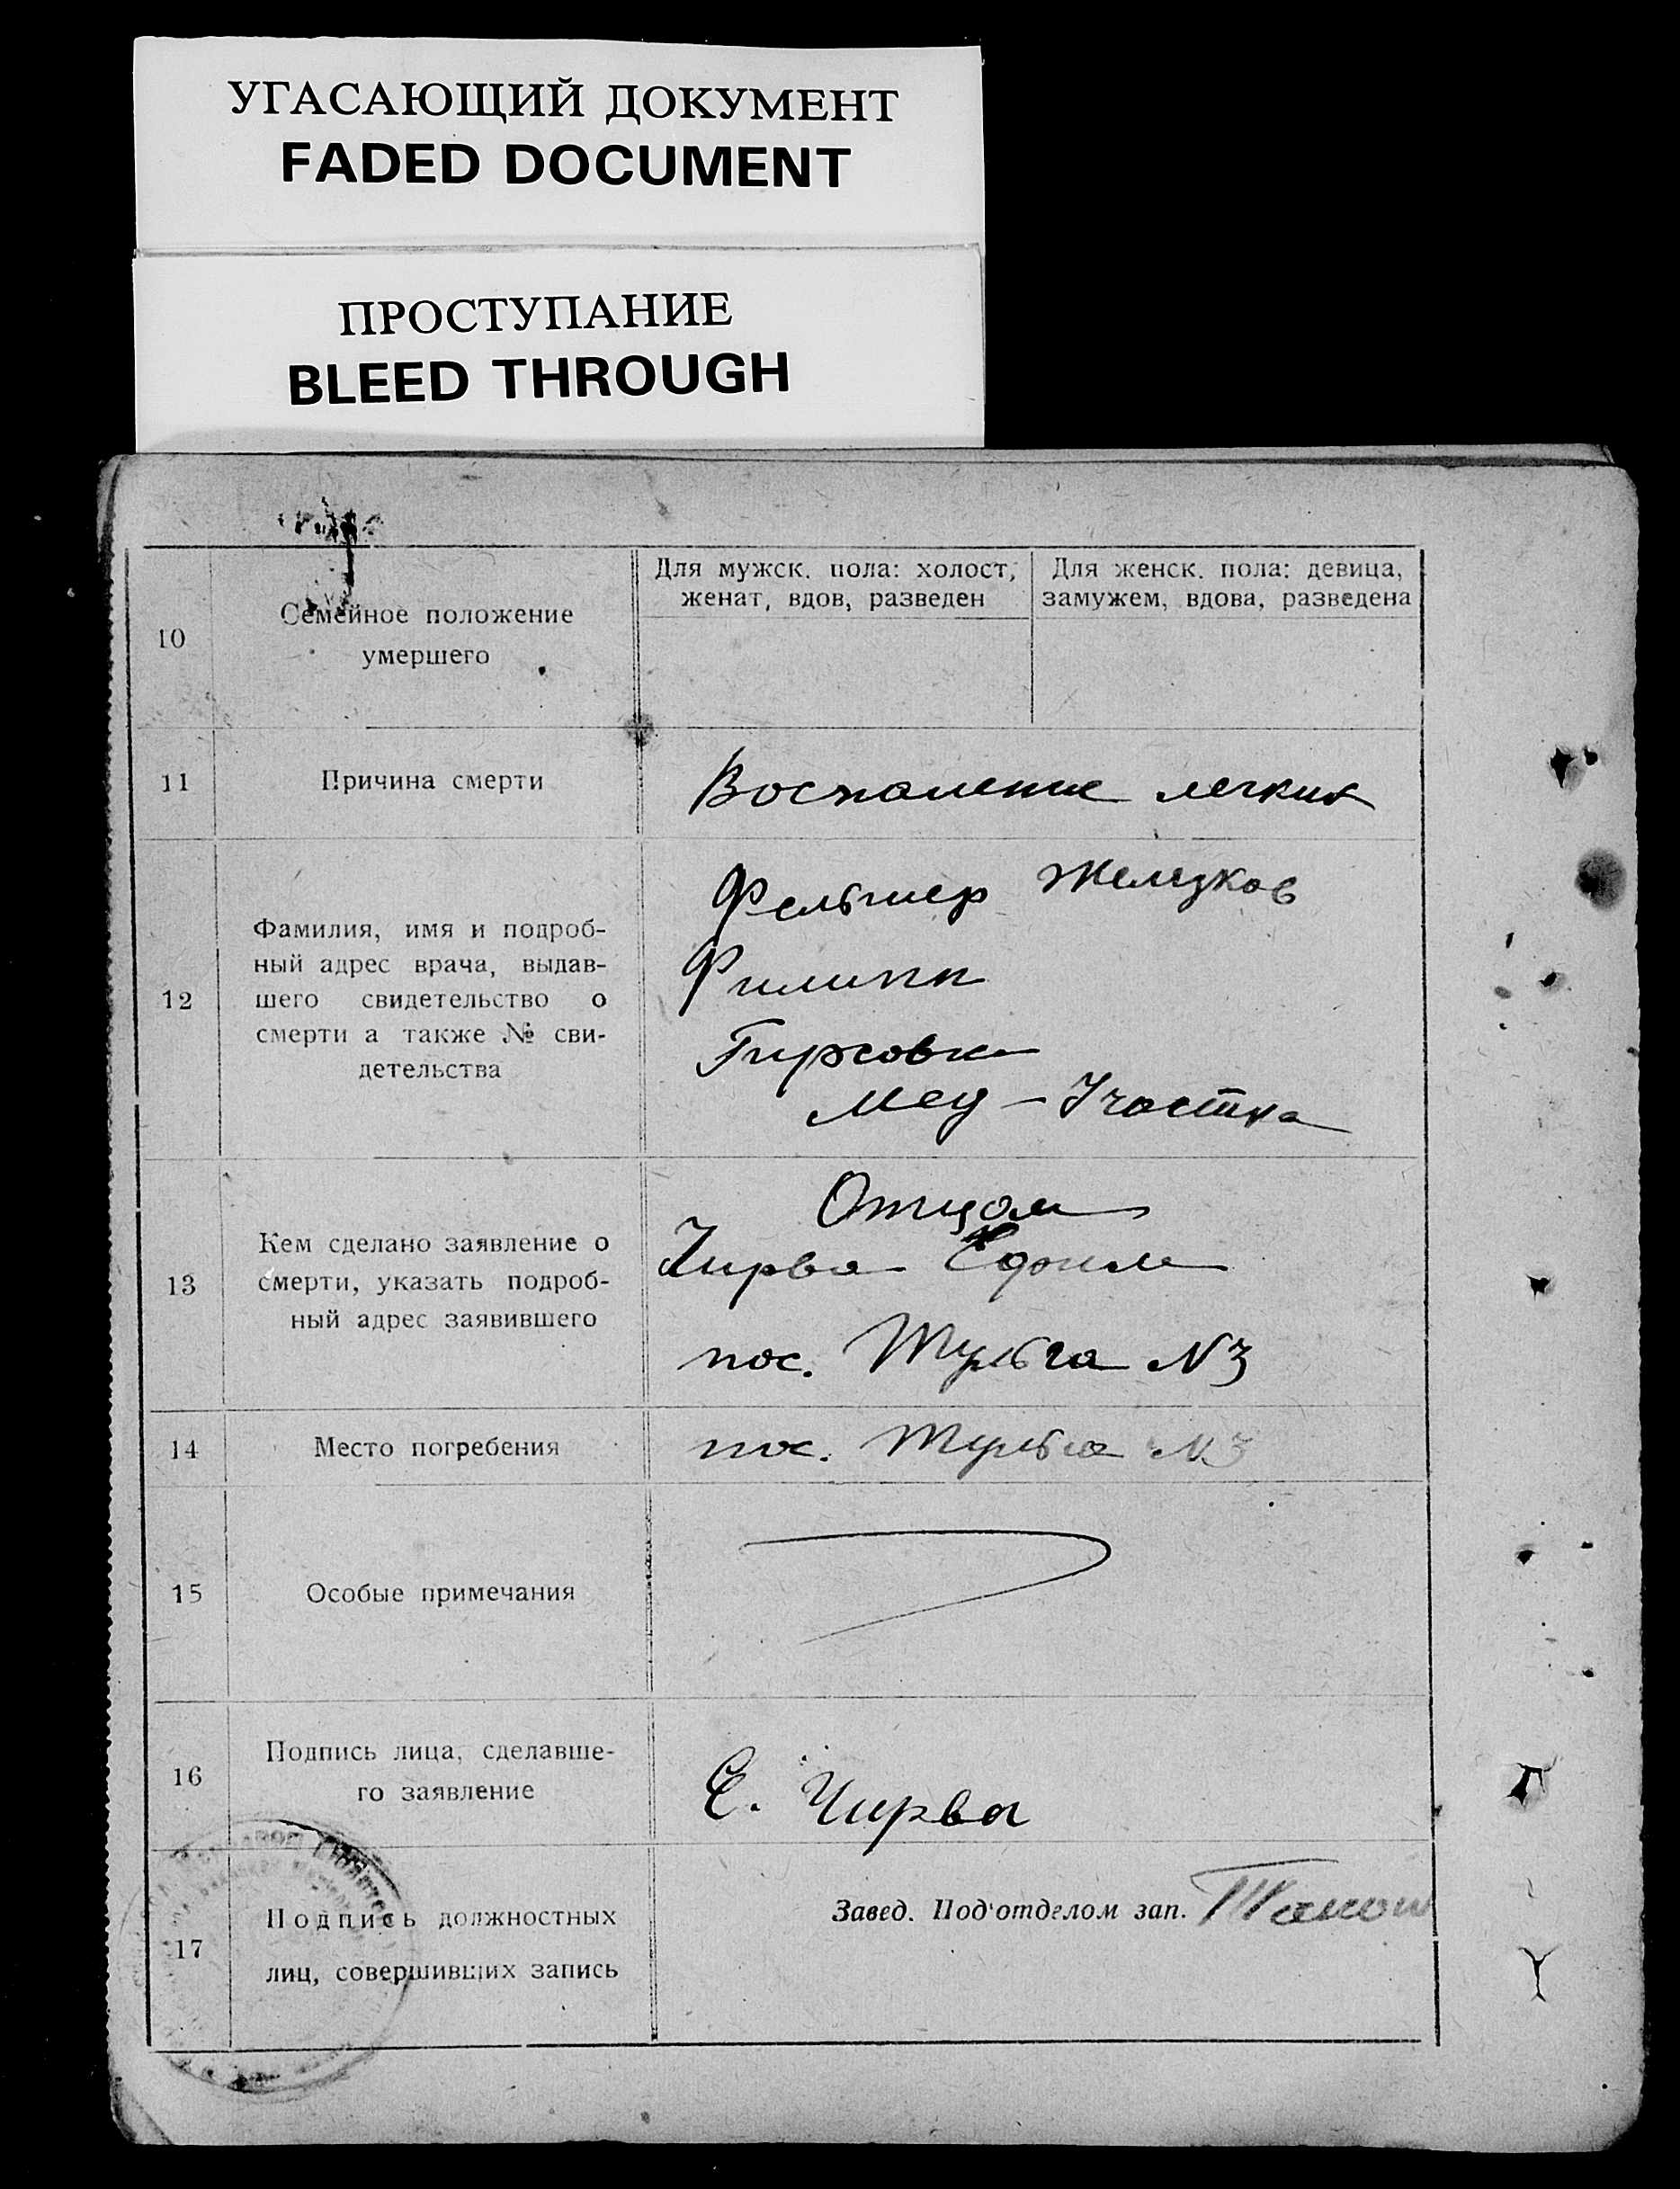 УГАСАЮЩИЙ ДОКУМЕНТ
FADED DOCUMENT
ПРОСТУПАНИЕ
BLEED THROUGH
10
Семейное положение
умершего
Для мужск. пола: холост,
женат, вдов, разведен
Для женск. пола: девица,
замужем, вдова, разведена
11
Причина смерти
Воспаление легких
12
Фамилия, имя и подроб-
ный адрес врача, выдав-
шего свидетельство о
смерти а также № сви-
детельства
Фельшер Железков
Филипп
Мед-Участка
13
Кем сделано заявление о
смерти, указать подроб-
ный адрес заявившего
Отцом
Чирва Ефим
пос. Шульга N3
14
Место погребения
пос. Шульга N3
15
Особые примечания
16
Подпись лица, сделавше-
го заявление
Е. Чирва
17
Подпись должностных
лиц, совершивших запись
Завед. Под‘отделом зап.